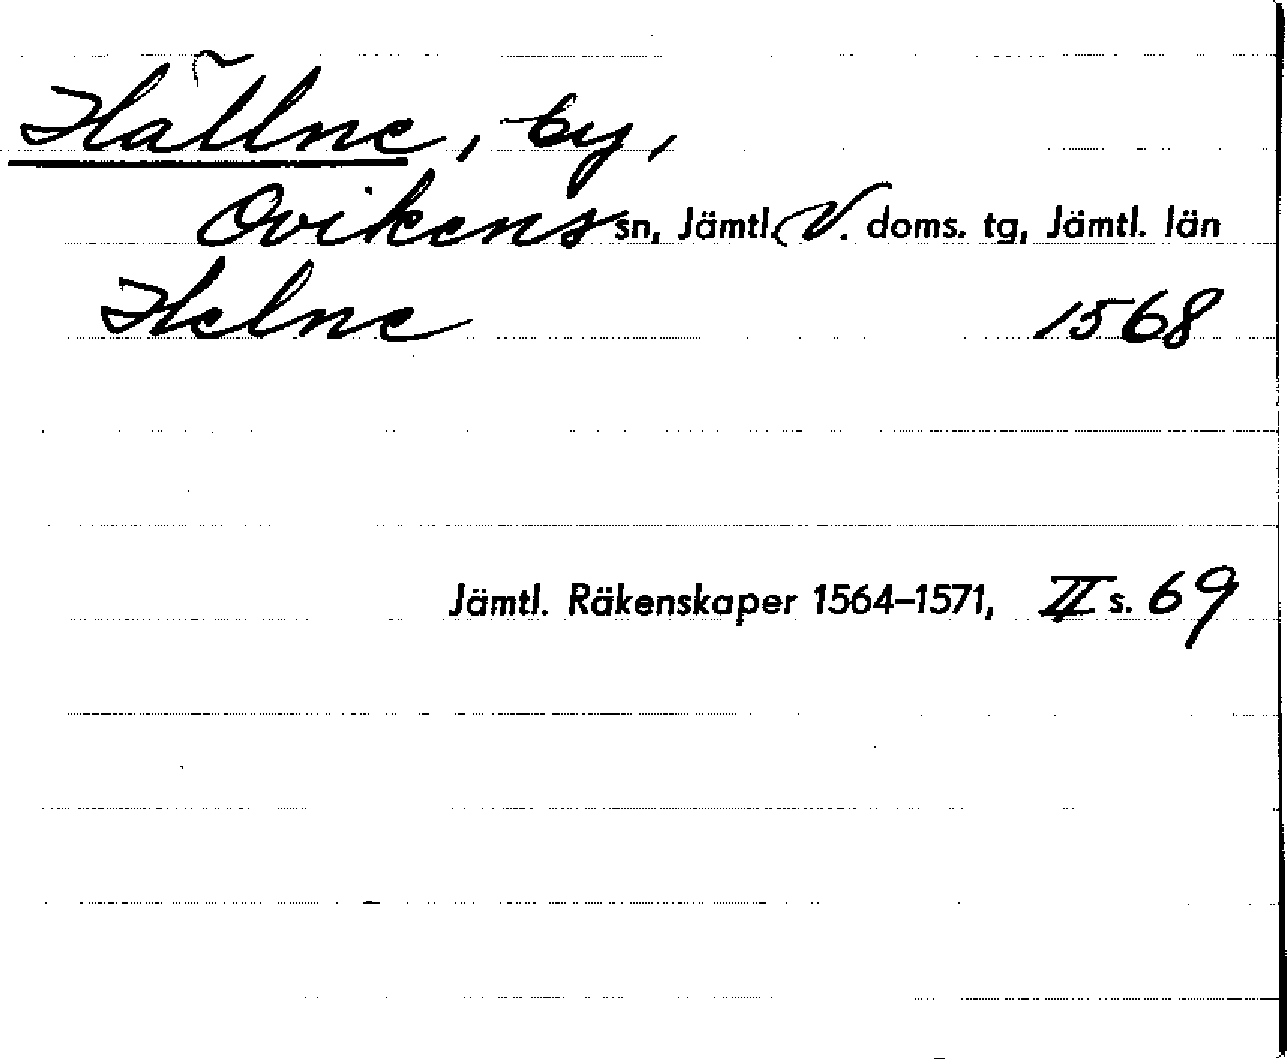 Hällne, by,
Ovikens sn, Jämtl. V. doms. tg, Jämtl. län
Helne 1568
Jämtl. Räkenskaper 1564–1571, II s. 69